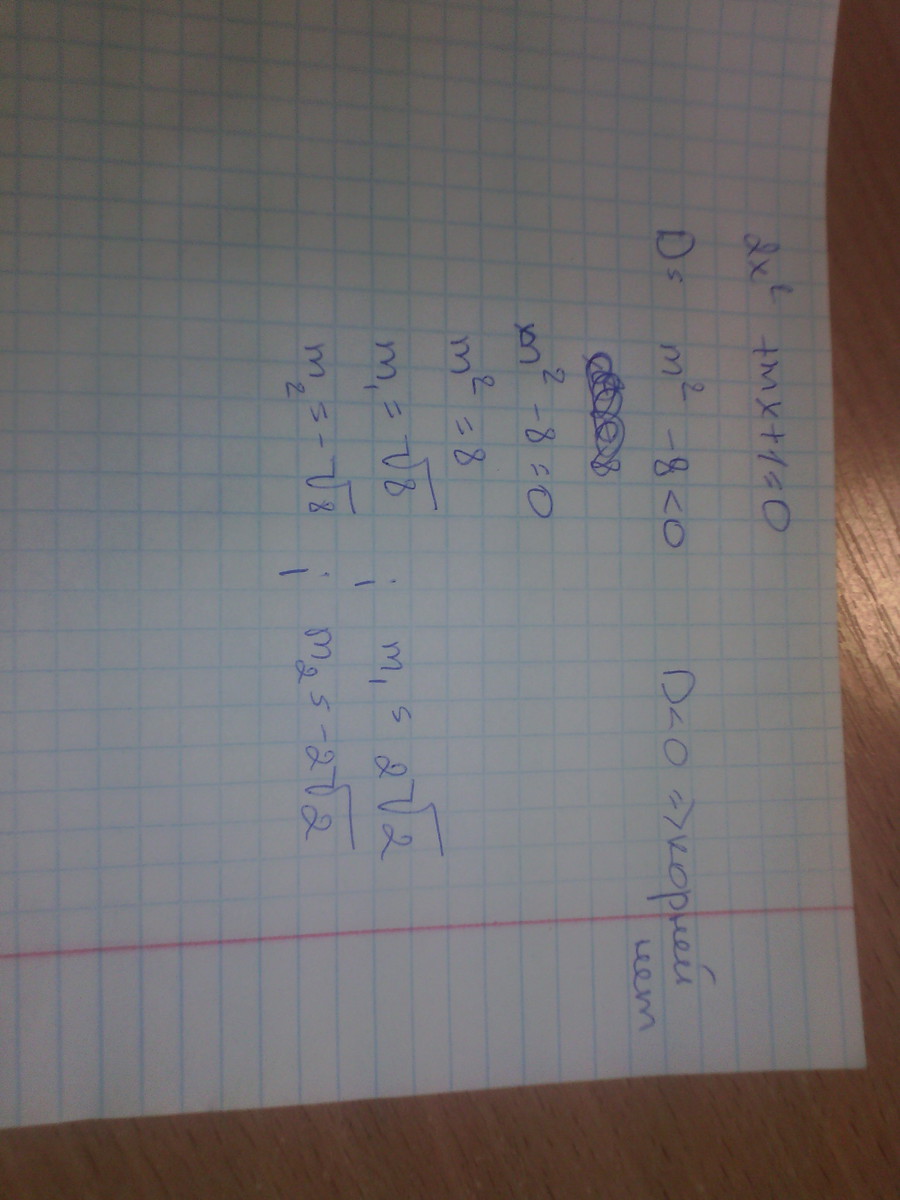 2x² + mx + 1 = 0
D = m² - 8 < 0 D < 0 => корней
нет
m² - 8 = 0
m² = 8
m₁ = √8 ; m₁ = 2√2
m₂ = -√8 ; m₂ = -2√2